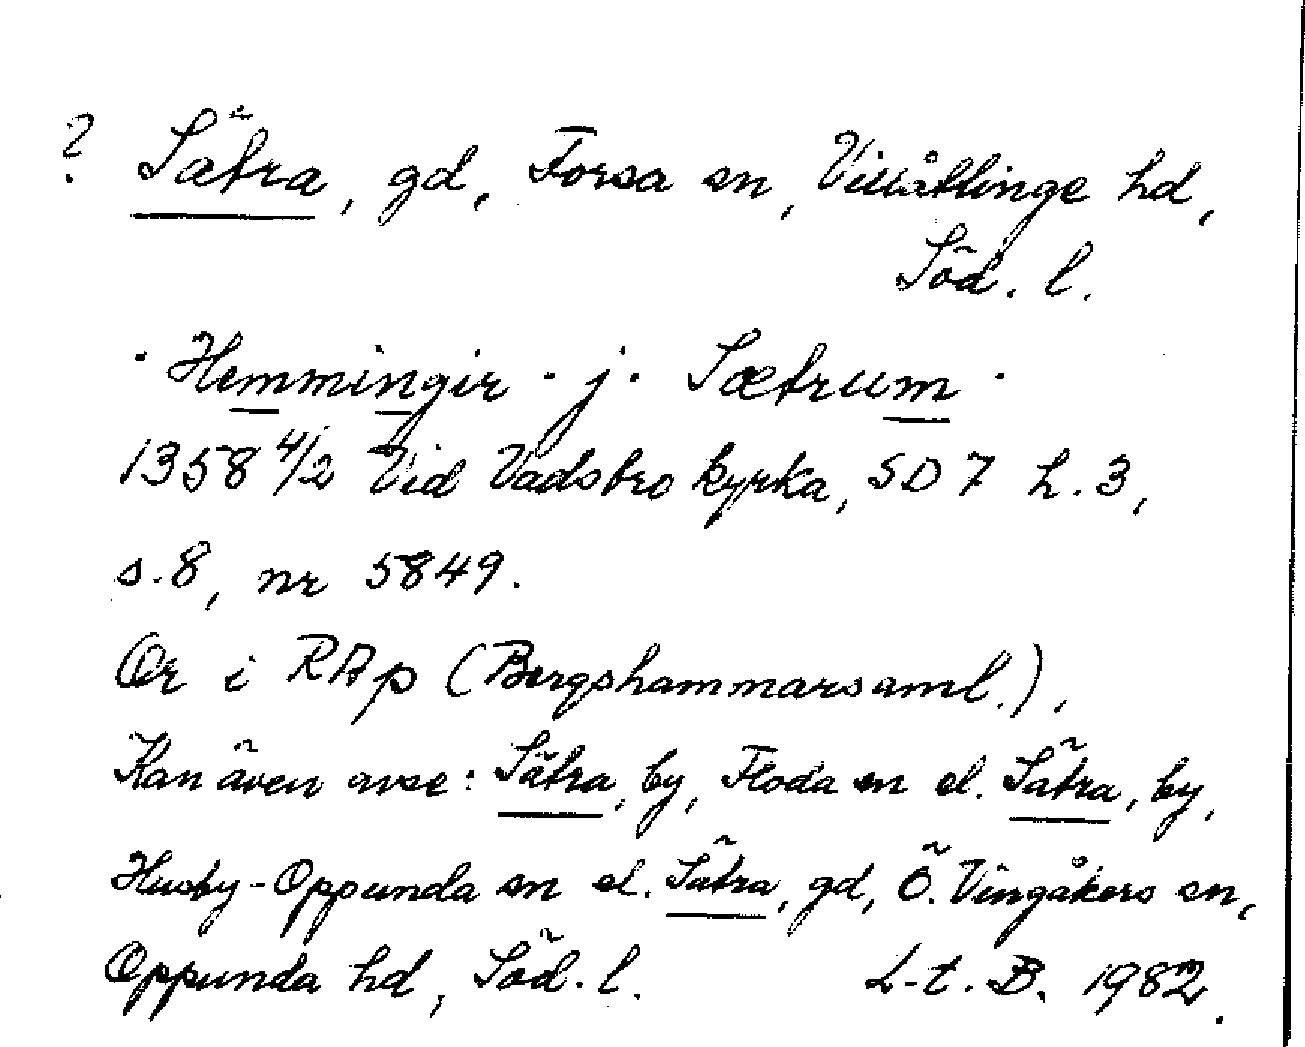 ? Sätra, gd, Forsa sn, Villåttinge hd,
Söd. l.
· Hemmingir · j · Sætrum ·
1358 4/2 Vid Vadsbro kyrka, SD 7 h. 3,
s. 8, nr 5849.
Or i RAp (Bergshammarsaml.).
Kan även avse: Sätra, by, Floda sn el. Sätra, by,
Husby-Oppunda sn el. Sätra, gd, Ö. Vingåkers sn,
Oppunda hd, Söd. l. L-t. B. 1982.